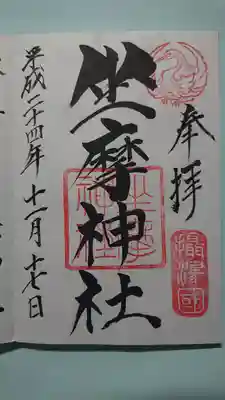 奉拝
攝津国
坐摩神社
平成二十四年十一月十七日